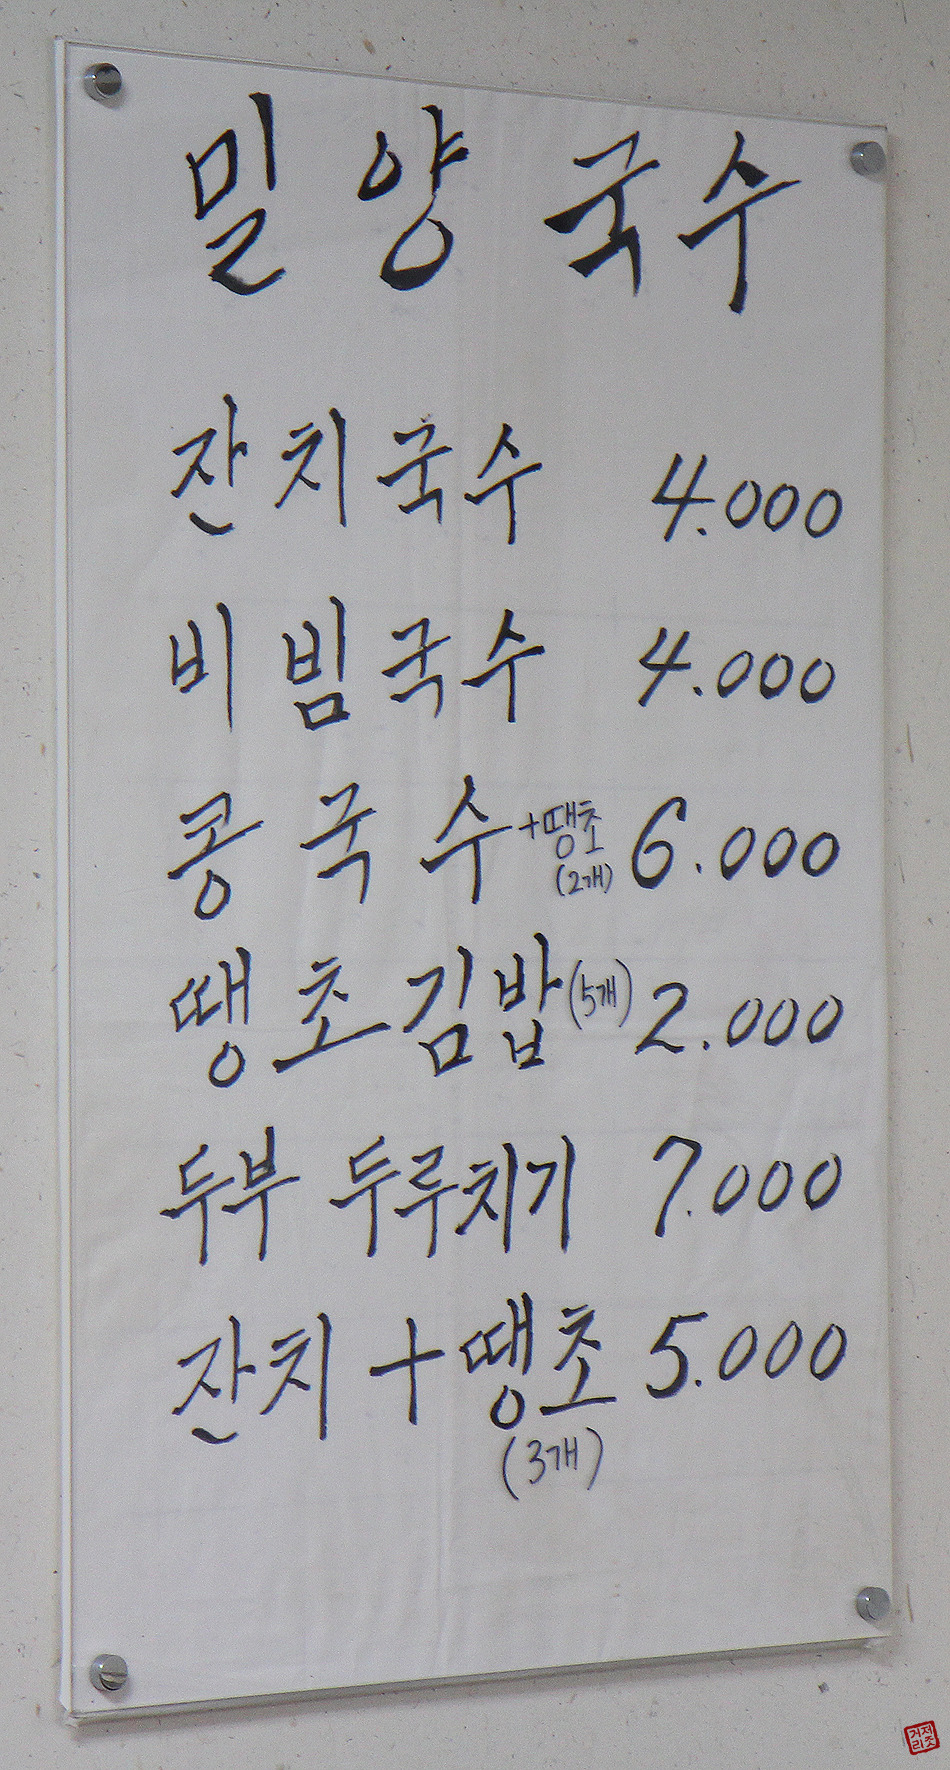 밀양국수
잔치국수 4.000
비빔국수 4.000
콩국수+땡초(2개) 6.000
땡초김밥(5개) 2.000
두부 두루치기 7.000
잔치+땡초 5.000
(3개)